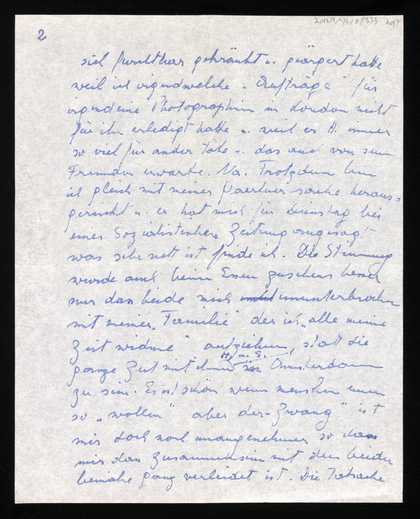 2
sich furchtbar gekränkt u. geärgert hatte
weil ich irgendwelche "Aufträge" für
irgendeine Photographin in London nicht
für ihn erledigt hatte u. weil er A. immer
so viel für andere tate - das auch von sein
Freunden erwarte. Na. Trotzdem bin
ich gleich mit meiner Paartner sache heraus-
gerückt u. er hat mich für Dienstag bei
einer Sozialistischen Zeitung angesagt
was sehr nett ist finde ich. Die Stimmung
wurde auch beim Essen zusehens besser
nur das beide mich ununterbrochen
mit meiner "Familie" der ich "alle meine
Zeit widme" aufziehen, statt die
ganze Zeit mit ihnen in Amsterdam
zu sein. Es ist schön wenn menschen einen
so "wollen" aber der "Zwang" ist
mir doch noch unangenehmer so dass
mir das Zusammensein mit den beiden
beinahe ganz verleidet ist. Die Tatsache